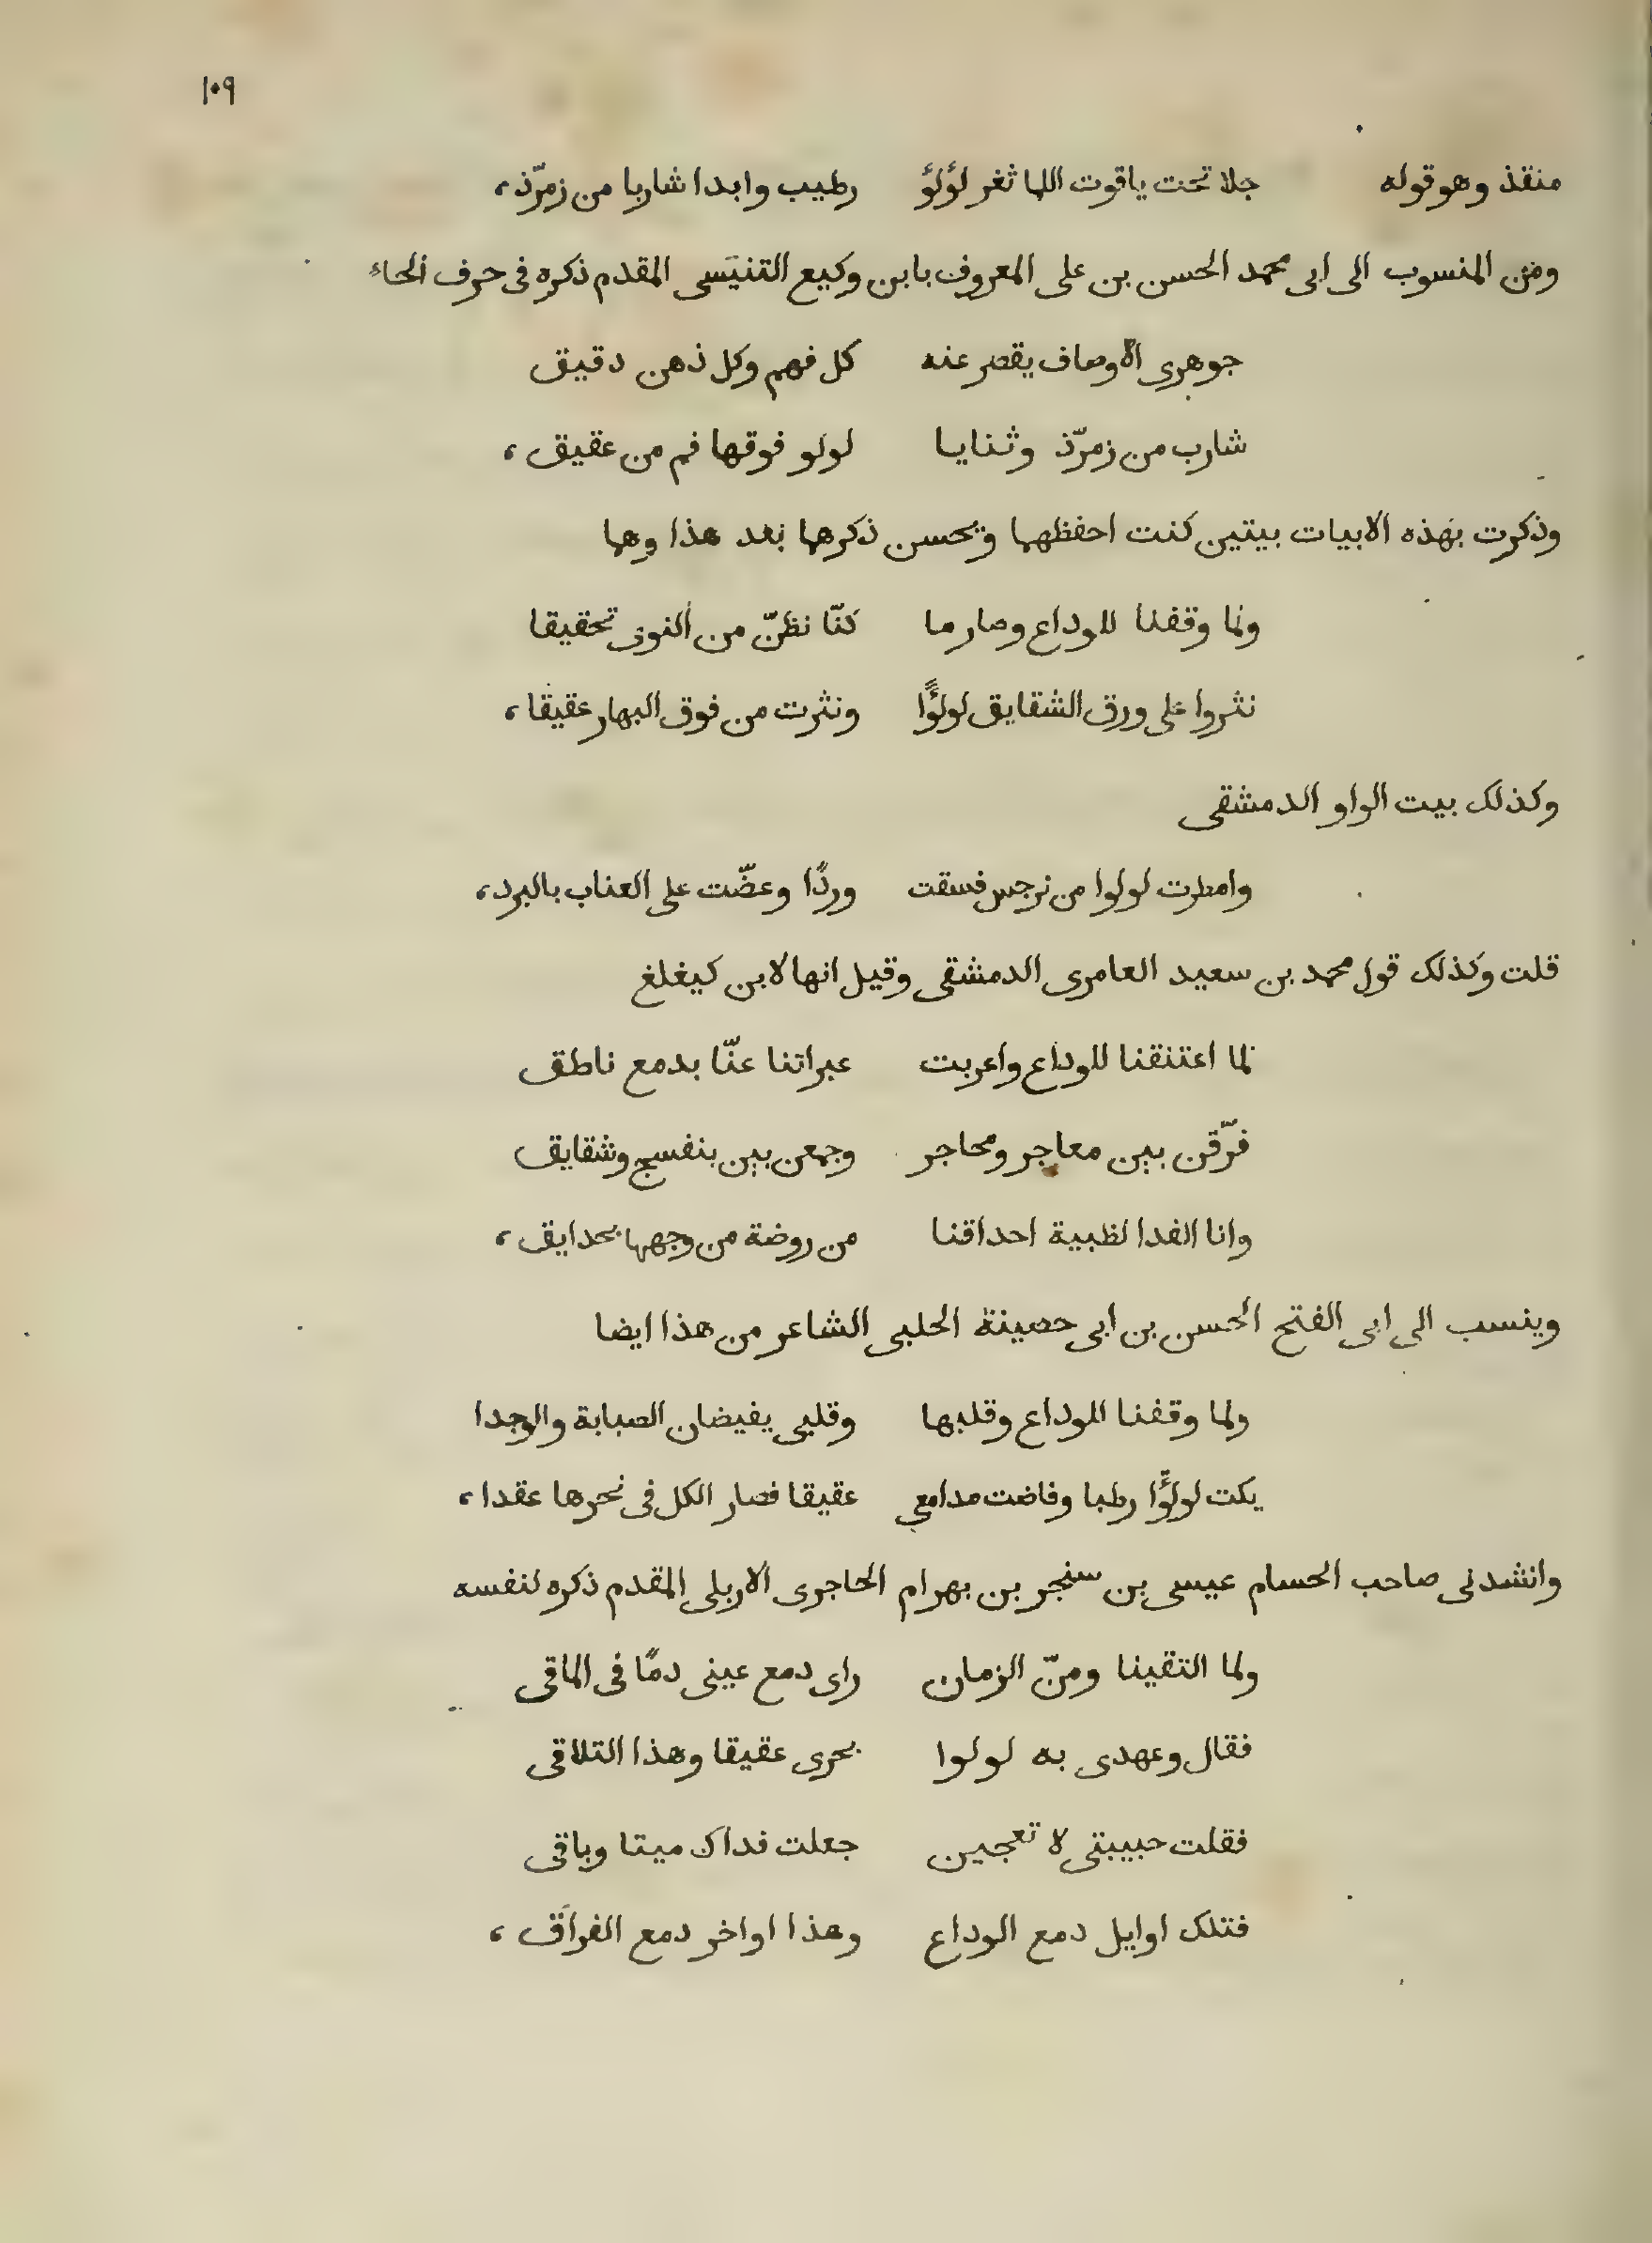 ١٠٩
منقذ وهو قوله جلا تحت ياقوت اللما ثغر لؤلؤ رطيب وابدا شاربا من زمرّذ،
ومن المنسوب الى ابى محمد الحسن بن على المعروف بابن وكيع التنيسى المقدم ذكره فى حرف الحاء
جوهرى الاوصاف يقصر عنه كل فهم وكل ذهن دقيق
شارب من زمرّذ وثنايا لولو فوقها فم من عقيق،
وذكرت بهذه الابيات بيتين كنت احفظهما ويحسن ذكرهما بعد هذا وهما
ولما وقفنا للوداع وصار ما كنّا نظنّ من النوى تحقيقا
نثروا على ورق الشقايق لولؤًا ونثرت من فوق البهار عقيقا،
وكذلك بيت الواو الدمشقى
وامطرت لولوا من نرجس فسقت وردًا وعضّت على العناب بالبرد،
قلت وكذلك قول محمد بن سعيد العامرى الدمشقى وقيل انها لابن كيغلغ
لما اعتنقنا للوداع واعربت عبراتنا عنّا بدمع ناطق
فرّقن بين معاجر ومحاجر وجمعن بين بنفسج وشقايق
وانا الفدا لظبية احداقنا من روضة من وجهها بحدايق،
وينسب الى ابى الفتح الحسن بن ابى حصينة الحلبى الشاعر من هذا ايضا
ولما وقفنا للوداع وقلبها وقلبى يفيضان الصبابة والوجدا
بكت لولؤًا رطبا وفاضت مدامعى عقيقا فصار الكل فى نحرها عقدا،
وانشدنى صاحب الحسام عيسى بن سنجر بن بهرام الحاجرى الاربلى المقدم ذكره لنفسه
ولما التقينا ومنّ الزمان راى دمع عينى دمًا فى الماقى
فقال وعهدى به لولوا يجرى عقيقا وهذا التلاقى
فقلت حبيبتى لا تعجبن جعلت فداك ميتا وباقى
فتلك اوايل دمع الوداع وهذا اواخر دمع الفراق،